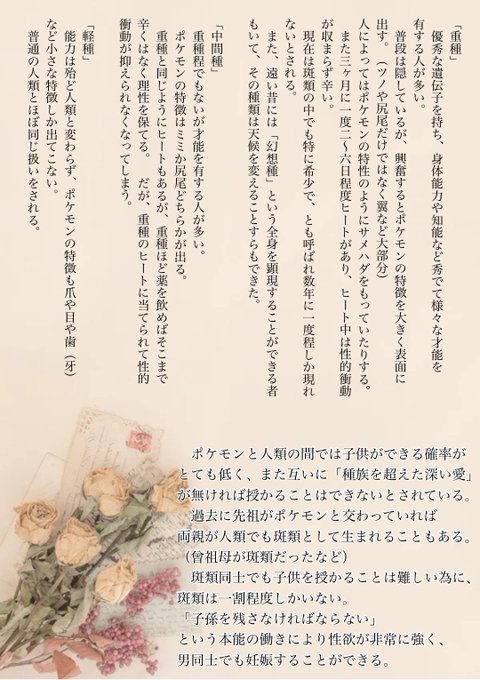 「重種」
　優秀な遺伝子を持ち、身体能力や知能など秀でて様々な才能を
有する人が多い。
　普段は隠しているが、興奮するとポケモンの特徴を大きく表面に
出す。（ツノや尻尾だけではなく翼など大部分）
人によってはポケモンの特性のようにサメハダをもっていたりする。
　また三ヶ月に一度二～六日程度ヒートがあり、ヒート中は性的衝動
が収まらず辛い。
　現在は斑類の中でも特に希少で、とも呼ばれ数年に一度程しか現れ
ないとされる。
　また、遠い昔には「幻想種」という全身を顕現することができる者
もいて、その種類は天候を変えることすらもできた。
「中間種」
　重種程でもないが才能を有する人が多い。
　ポケモンの特徴はミミか尻尾どちらかが出る。
　重種と同じようにヒートもあるが、重種ほど薬を飲めばそこまで
辛くはなく理性を保てる。　だが、重種のヒートに当てられて性的
衝動が抑えられなくなってしまう。
「軽種」
　能力は殆ど人類と変わらず、ポケモンの特徴も爪や目や歯（牙）
など小さな特徴しか出てこない。
　普通の人類とほぼ同じ扱いをされる。
　ポケモンと人類の間では子供ができる確率が
とても低く、また互いに「種族を超えた深い愛」
が無ければ授かることはできないとされている。
　過去に先祖がポケモンと交わっていれば
両親が人類でも斑類として生まれることもある。
（曾祖母が斑類だったなど）
　斑類同士でも子供を授かることは難しい為に、
斑類は一割程度しかいない。
「子孫を残さなければならない」
という本能の働きにより性欲が非常に強く、
男同士でも妊娠することができる。